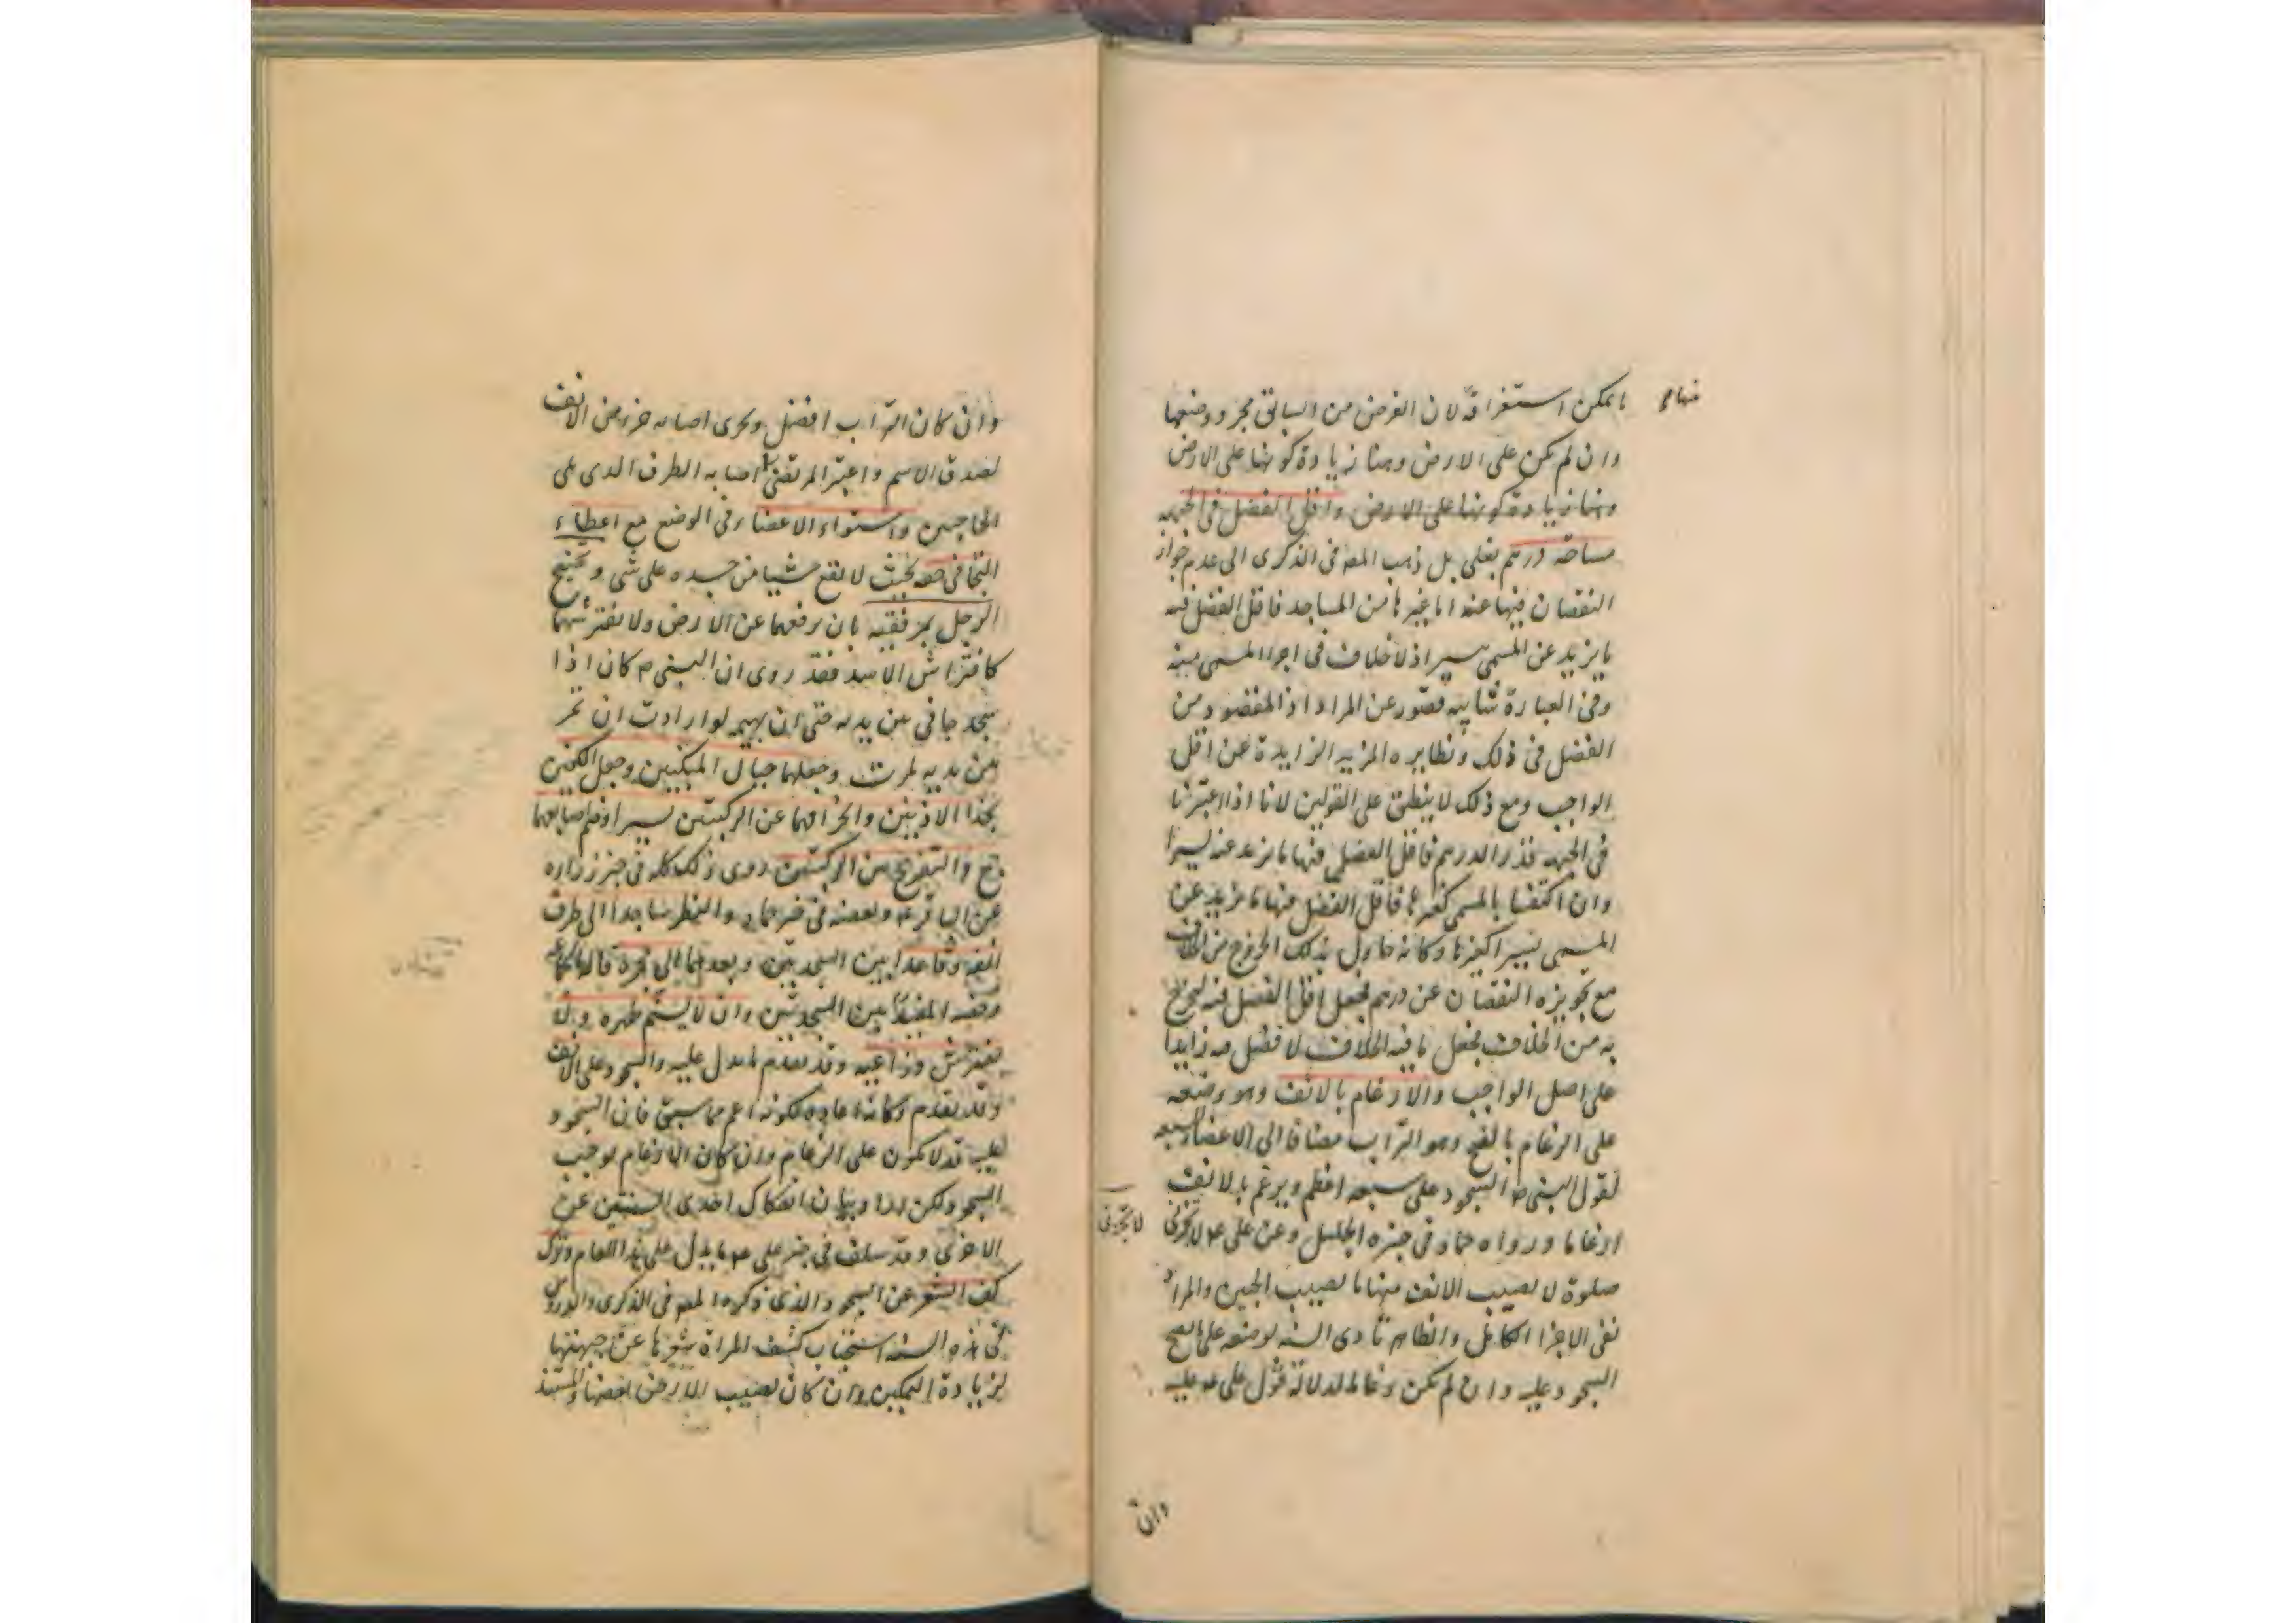 ما يمكن استغراقه لان الغرض من السابق مجرد وضعها
منها صح
وان لم يكن على الارض وهنا زيادة كونها على الارض
وهنا زيادة كونها على الارض واقل الفضل في الجبهة
مساحة درهم بغلي بل ذهب المصه في الذكرى الى عدم جواز
النقصان فيها عنه اما غيرها من المساجد فاقل الفضل فيه
ما يزيد عن المسمى يسيرا اذ لا خلاف في اجزا المسمى منه
وفي العبارة شايبه قصور عن المراد اذ المقصود من
الفضل في ذلك ونظايره المزيد الزايدة عن اقل
الواجب ومع ذلك لا ينطبق على القولين لانا اذا اعتبرنا
في الجبهه قدر الدرهم فاقل الفضل فيها ما يزيد عنه يسيرا
وان اكتفينا بالمسمى كغيرها فاقل الفضل منها ما يزيد عن
المسمى يسيرا كغيرها وكانه حاول بذلك الخروج من الخلاف
مع تجويزه النقصان عن درهم فجعل اقل الفضل فيه ليخرج
به من الخلاف فجعل ما فيه الخلاف لا فضل فيه زايدا
على اصل الواجب والارغام بالانف وهو وضعه
على الرغام بالفتح وهو التراب مضافا الى الاعضاء السبعه
لقول النبي ص السجود على سبعه اعظم ويرغم بالانف
ارغاما ورواه حماد في خبره الجليل وعن علي عم لا تجزى
لا تجزى
صلوة لا يصيب الانف منها ما يصيب الجبين والمراد
نفى الاجزا الكامل والظاهر تادى السنه بوضعه على ما يصح
السجود عليه وان لم يكن رغاما لدلالة قول علي عم عليه
وان
وان كان التراب افضل ويجزى اصابه جزء من الانف
لصدق الاسم واعتبر المرتضى اصابه الطرف الذي يلي
الحاجبين واستواء الاعضاء في الوضع مع اعطاء
التجافي حقه بحيث لا يقع شيا من جسده على شي وتجنيح
الرجل بمرفقيه بان يرفعهما عن الارض ولا يفترشهما
كافتراش الاسد فقد روى ان النبي ص كان اذا
سجد جافى بين يديه حتى ان بهيمه لو ارادت ان تمر
بين يديه لمرت وجعلهما حيال المنكبين وجعل الكفين
بحذا الاذنين وانحرافهما عن الركبتين يسيرا وضم اصابعهما
والتفريج بين الركبتين روى ذلك كله في خبر زراره
عن الباقر عم وبعضه في خبر حماد والنظر ساجدا الى طرف
انفه وقاعدا بين السجدتين وبعدهما الى حجره قاله
المفيد بين السجدتين وان لا يسنم ظهره ولا
يفترش ذراعيه وقد تقدم ما يدل عليه والسجود على الانف
وقد تقدم وكانه اعاده لكونه اعم مما سبق فان السجود
عليه قد لا يكون على الرغام وان كان الارغام يوجب
السجود ولكن اراد بيان انفكاك احدى السنتين عن
الاخرى وقد سلف في خبر علي عم ما يدل على هذا المقام وترك
كف الشعر عن السجود والذي ذكره المصه في الذكرى والدروس
في هذه السنه استحباب كشف المراة شعرها عن جبهتها
لزيادة التمكين وان كان يصيب الارض بعضها والمستند